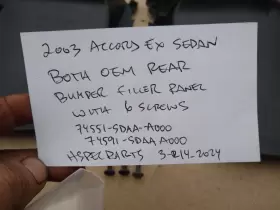 2003 ACCORD EX SEDAN
BOTH OEM REAR
BUMPER FILLER PANEL
WITH 6 SCREWS
74551-SDAA-A000
74591-SDAA A000
HSPECPARTS 3-R14-2024